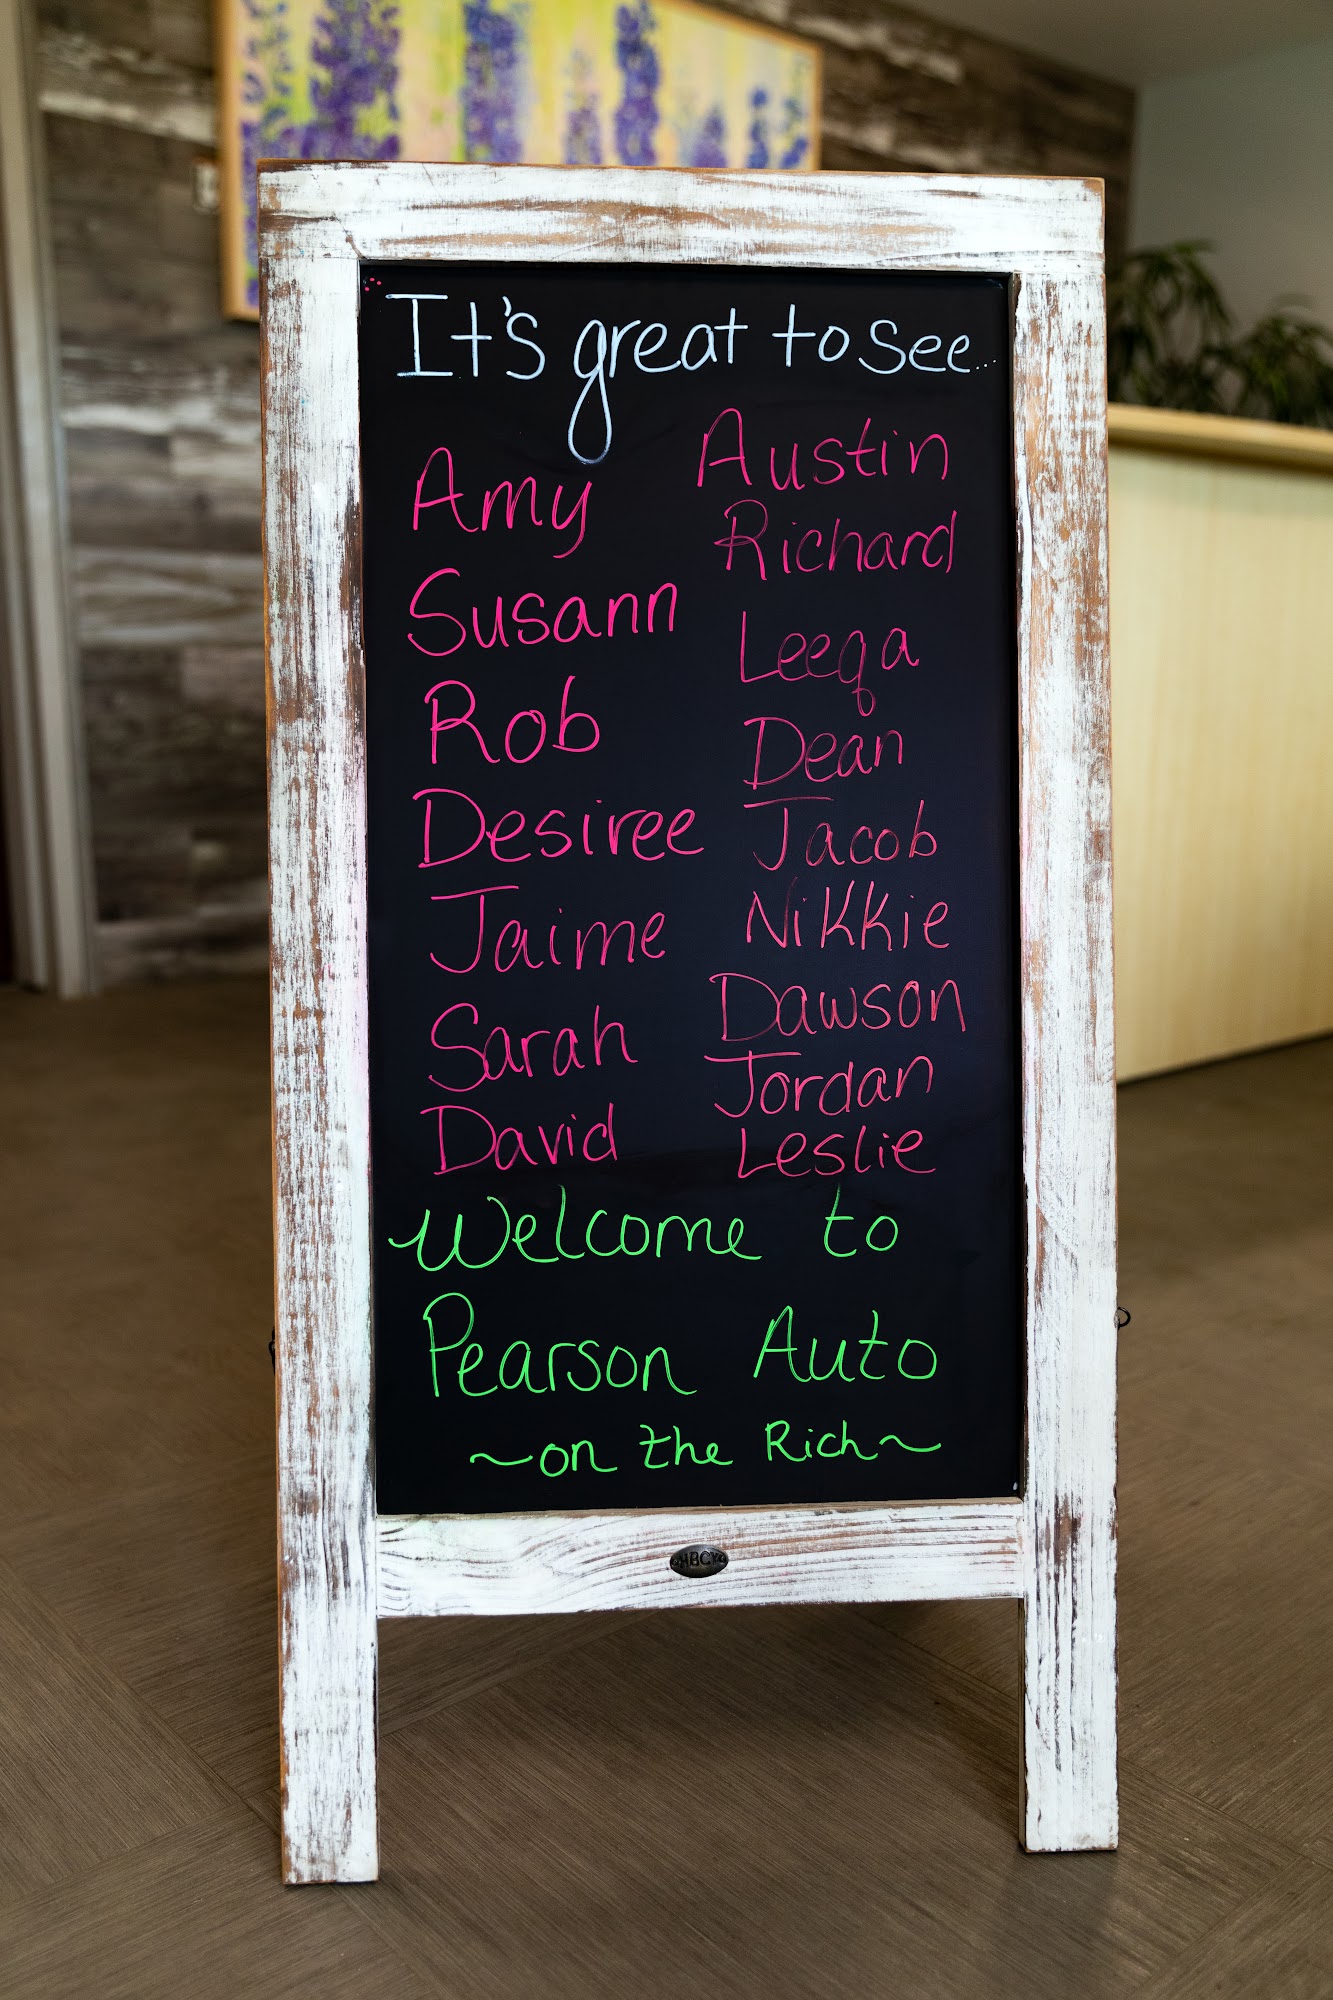 It's great to see...
Amy
Susann
Rob
Desiree
Jaime
Sarah
David
Austin
Richard
Leeqa
Dean
Jacob
Nikkie
Dawson
Jordan
Leslie
Welcome to
Pearson Auto
~on the Rich~